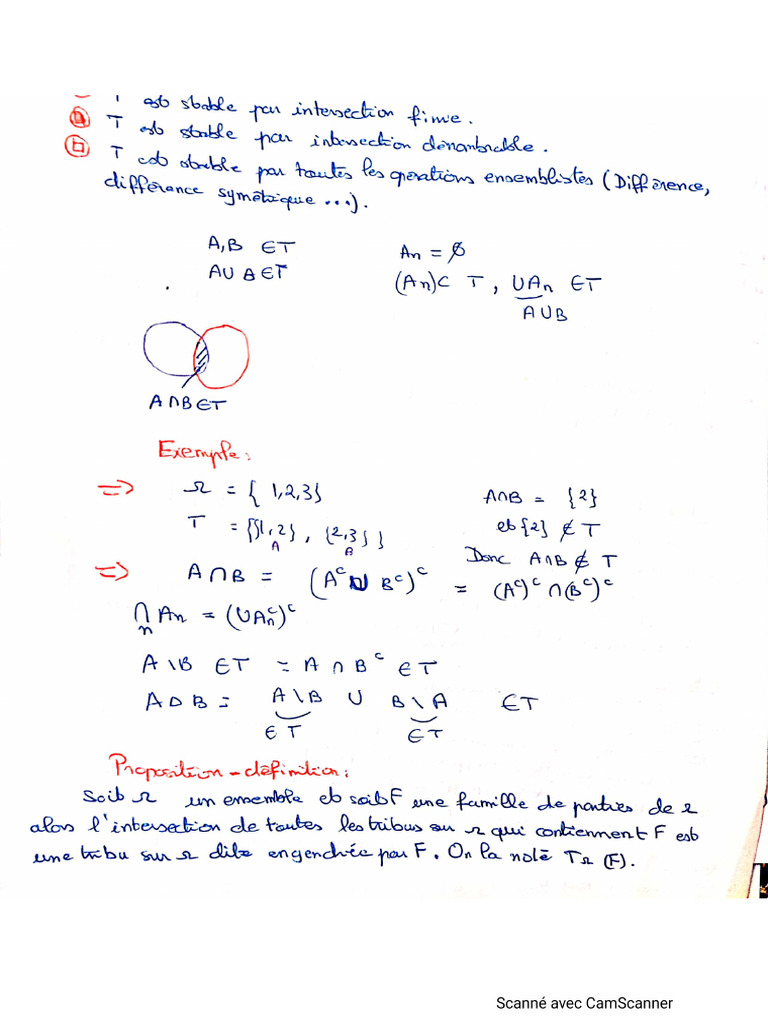 T est stable par intersection finie.
T est stable par intersection dénombrable.
T est stable par toutes les opérations ensemblistes (Différence,
différence symétrique ...).
A,B ∈T An = ∅
A∪B∈T (An)⊂ T, ∪An ∈T
A∪B
A∩B∈T
Exemple:
=> Ω = {1,2,3} A∩B = {2}
T = {{1,2}, {2,3}} et {2} ∉ T
A B Donc A∩B ∉ T
=> A∩B = (Aᶜ ∪ Bᶜ)ᶜ = (Aᶜ)ᶜ ∩(Bᶜ)ᶜ
∩ An = (∪Anᶜ)ᶜ
n
A\B ∈T = A ∩ Bᶜ ∈T
A Δ B = A\B ∪ B\A ∈T
∈T ∈T
Proposition-définition:
Soit Ω un ensemble et soit F une famille de parties de Ω
alors l'intersection de toutes les tribus su Ω qui contiennent F est
une tribu sur Ω dite engendrée par F. On la note TΩ (F).
Scanné avec CamScanner